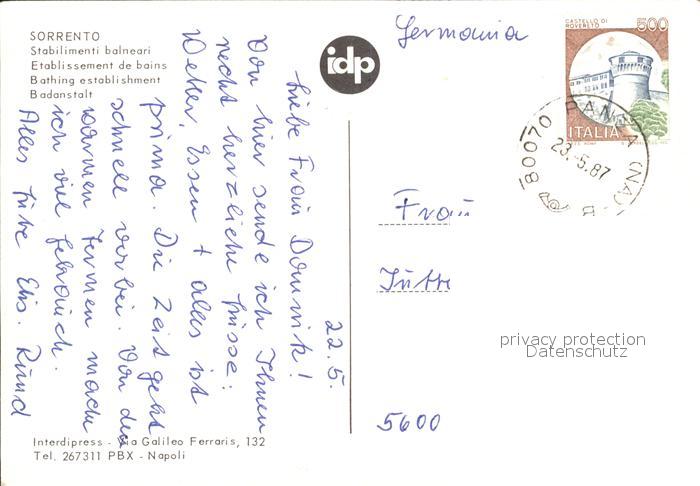 SORRENTO
Stabilimenti balneari
Etablissement de bains
Bathing establishment
Badanstalt
idp
Germania
CASTELLO DI
ROVERETO
500
ITALIA
80070 (NA)
23.-5.87
22.5.
Liebe Frau Dommik!
Von hier sende ich Ihnen
recht herzliche Grüsse.
Wetter, Essen + alles ist
prima. Die Zeit geht
schnell vorbei. Von den
warmen Termen mache
ich viel Gebrauch.
Alles Gute Ehs. Rund
Frau
Jutta
5600
privacy protection
Datenschutz
Interdipress - Via Galileo Ferraris, 132
Tel. 267311 PBX - Napoli